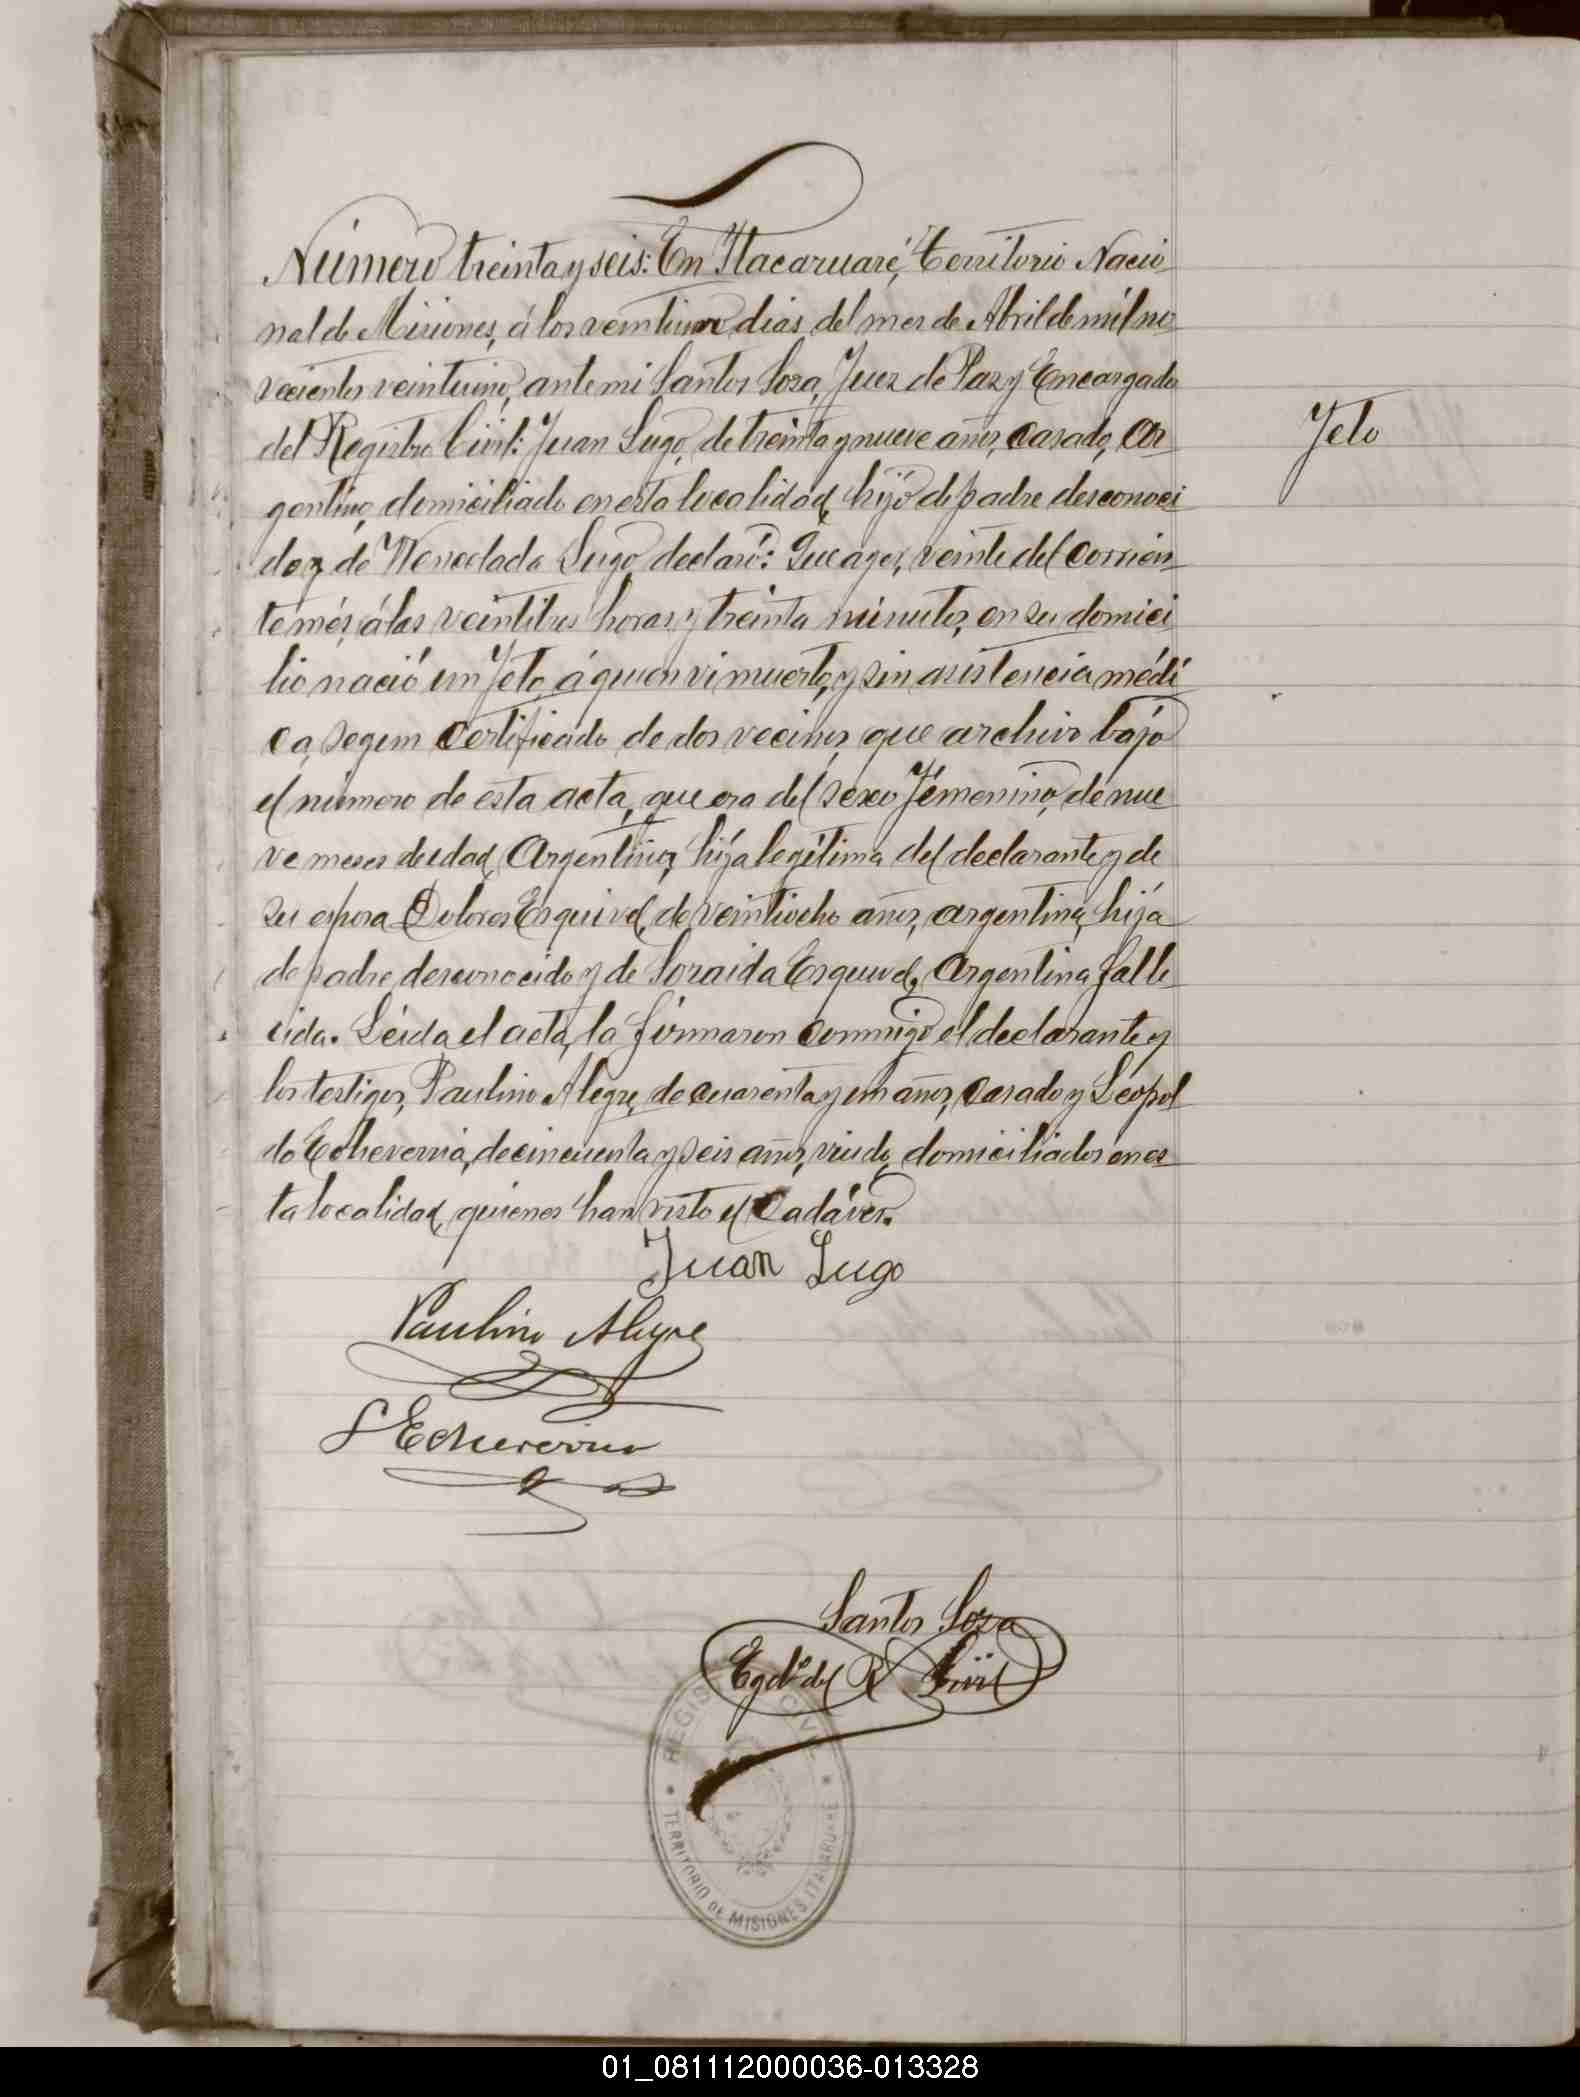 Número treinta y seis: En Itacaruaré, Territorio Nacio
nal de Misiones, á los veintiun dias del mes de Abril de mil no
vecientos veintiuno, ante mi Santos Soza, Juez de Paz y Encargado
del Registro Civil: Juan Lugo, de treinta y nueve años, casado, Ar
gentino, domiciliado en esta localidad, hijo de padre desconoci
do y de Wenselada Lugo, declaró: Que ayer, veinte del corrien
te més, á las veintitres horas y treinta minutos, en su domici
lio nació un Feto, á quien vi muerto, y sin asistencia médi
ca, segun certificado de dos vecinos, que archivo bajo
el número de esta acta, que era del sexo Femenino, de nue
ve meses de edad, Argentina, hija legítima del declarante y de
su esposa Dolores Esquivel, de veintiocho años, argentina, hija
de padre desconocido y de Soraida Esquivel, Argentina, falle
cida. Leida el acta, la firmaron conmigo el declarante y
los testigos, Paulino Alegre, de cuarenta y un años, casado y Leopol
do Echeverria, de cincuenta y seis años, viudo, domiciliados en es
ta localidad, quienes han visto el cadáver.
Feto
Juan Lugo
Paulino Alegre
L Echeverria
Santos Soza
Egdo del R Civil
REGISTRO CIVIL
TERRITORIO DE MISIONES ITACARUARE
01_081112000036-013328